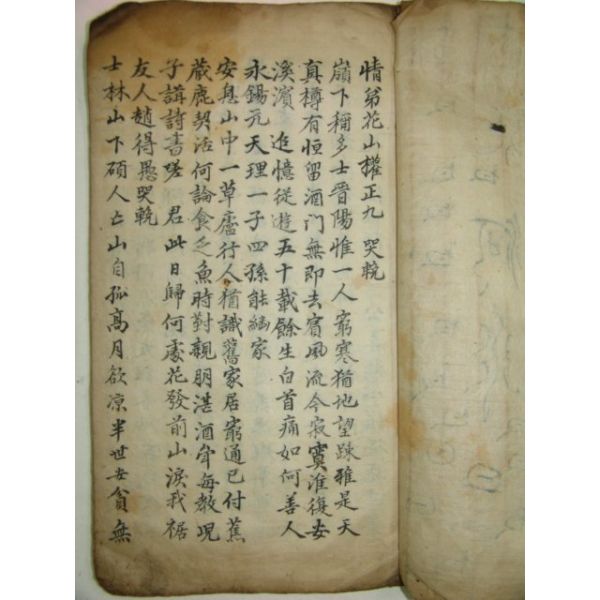 情弟花山權正九 哭輓
嶺下稱多士晉陽惟一人窮寒猶地望踈雅是天
真樽有恒留酒門無即去賓風流今寂寞誰復安
溪濱 追憶從遊五十載餘生白首痛如何善人
永錫元天理一子四孫能繼家
安息山中一草廬行人猶識舊家居窮通已付蕉
藏鹿契活何論食乏魚時對親朋湛酒食每教兒
子講詩書嗟 君此日歸何處花發前山淚我裾
友人趙得愚哭輓
士林山下碩人亡山自孤高月欲凉半世安貧無